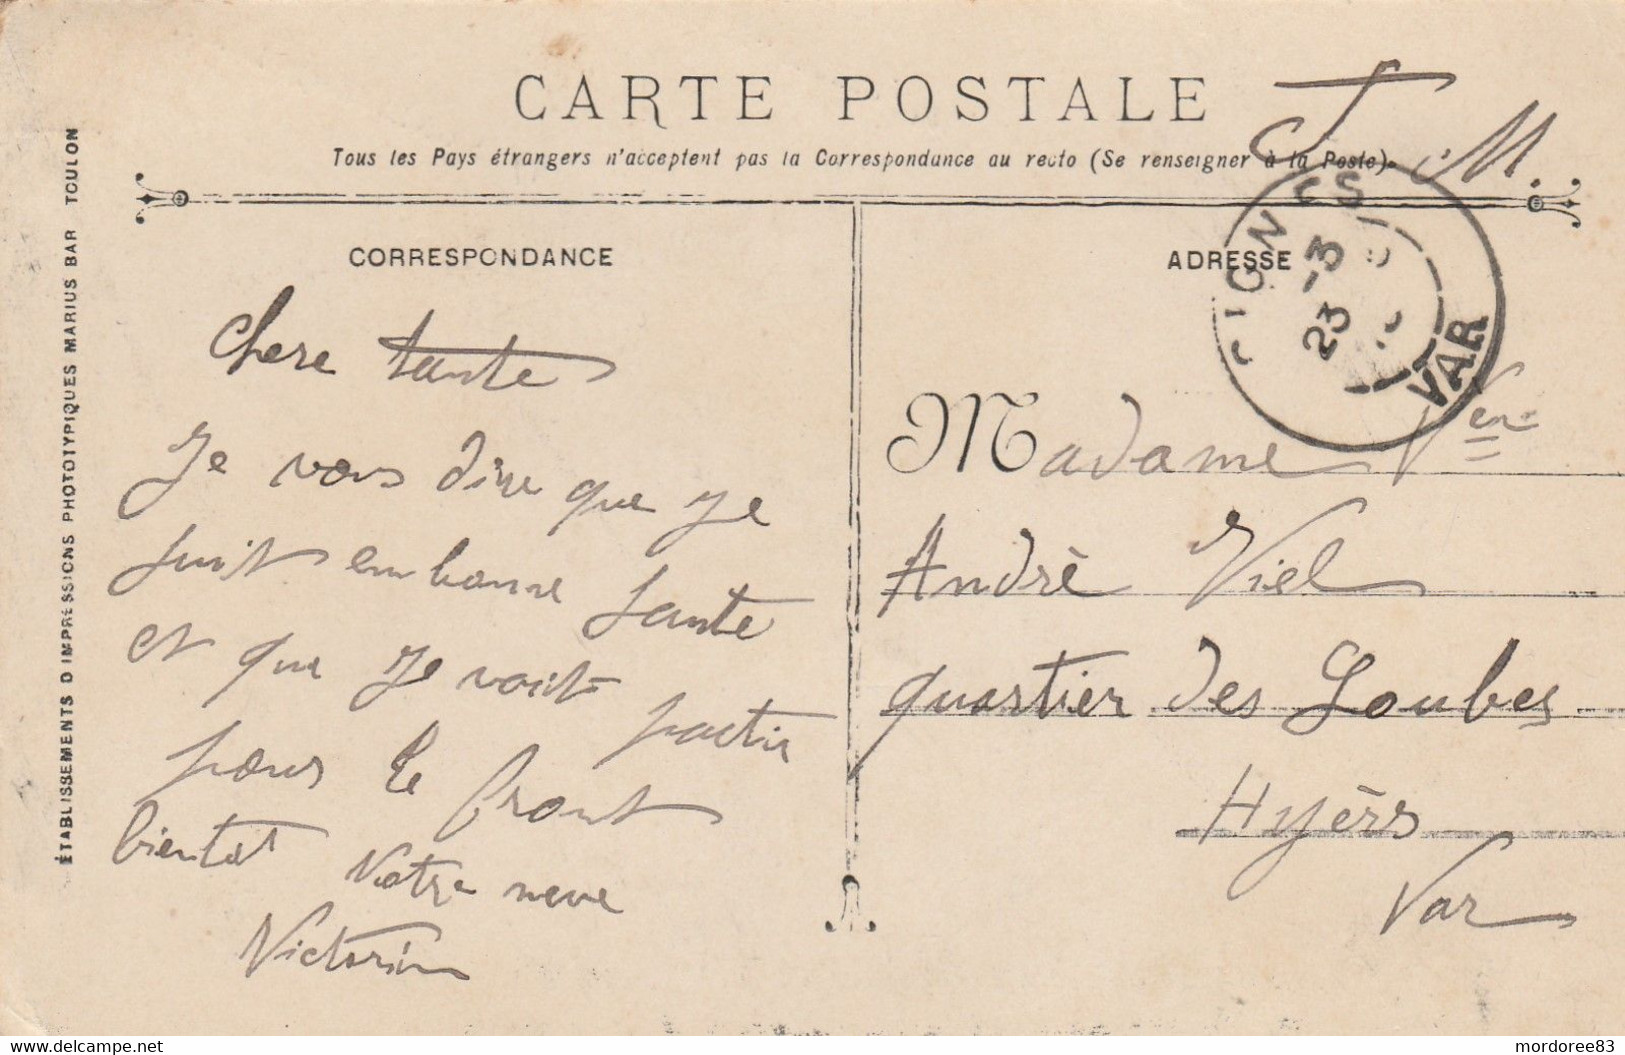 CARTE POSTALE
Tous les Pays étrangers n'acceptent pas la Correspondance au recto (Se renseigner à la Poste).
F.M.
CORRESPONDANCE
Chere tante
Je vous dire que je
suit en bonne sante
et que je voit partir
pour le front
bientot Votre neve
Victorin
ADRESSE
SIGNES
23 -3
VAR
Madame Vve
Andrè Viel
quartier des Loubes
Hyèrs
Var
ÉTABLISSEMENTS D'IMPRESSIONS PHOTOTYPIQUES MARIUS BAR TOULON
www.delcampe.net
mordoree83